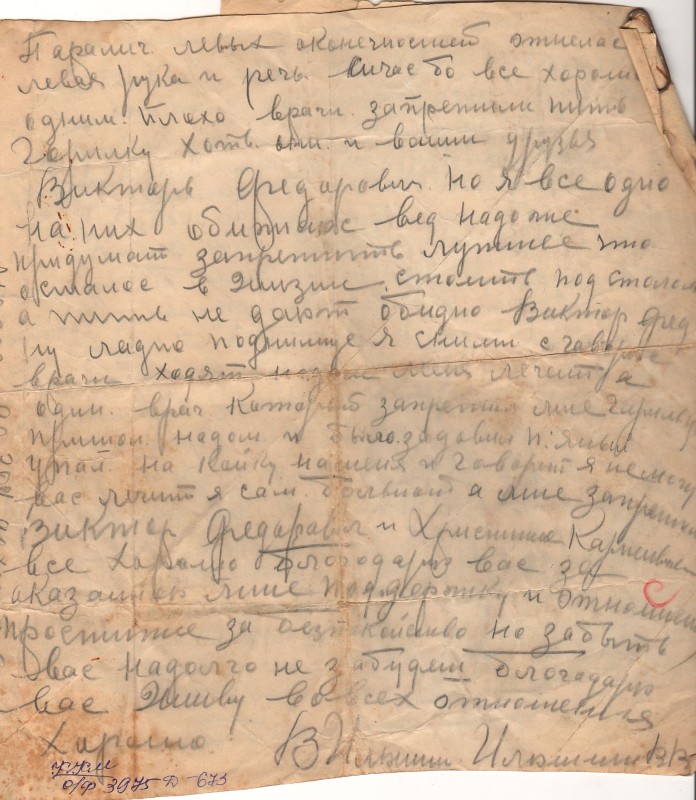 Паралич левых оконечностей отнелас
левая рука и речь сичас бо все хорошо
одним. Плохо врачи. запретили пить
Горилку хоть они и ваши друзья
Виктарь Федарович. но я все одно
на них обижаюс вед надоже
придумат запретить лутшее что
осталос в жизни. стоить под столом
а пить не дают обидно Виктар Фед
ну ладно
врачи ходят меня лечит а
один. врач. Каторый запретил мне гарилку
пришол надом и было задавил пяный
упал на койку на меня и говорит я немогу
вас лечит я сам. больной а мне запретил
Виктар Федарович и Христиния
все хорошо благодарю вас за
оказанную мне поддержку и отношен
простите за безпокойство но забыть
вас надолго не забудем благодарю
вас живу во всех отношения
Харошо В Ильинин Ильинин ВВ
о/ф 3975 Д-673